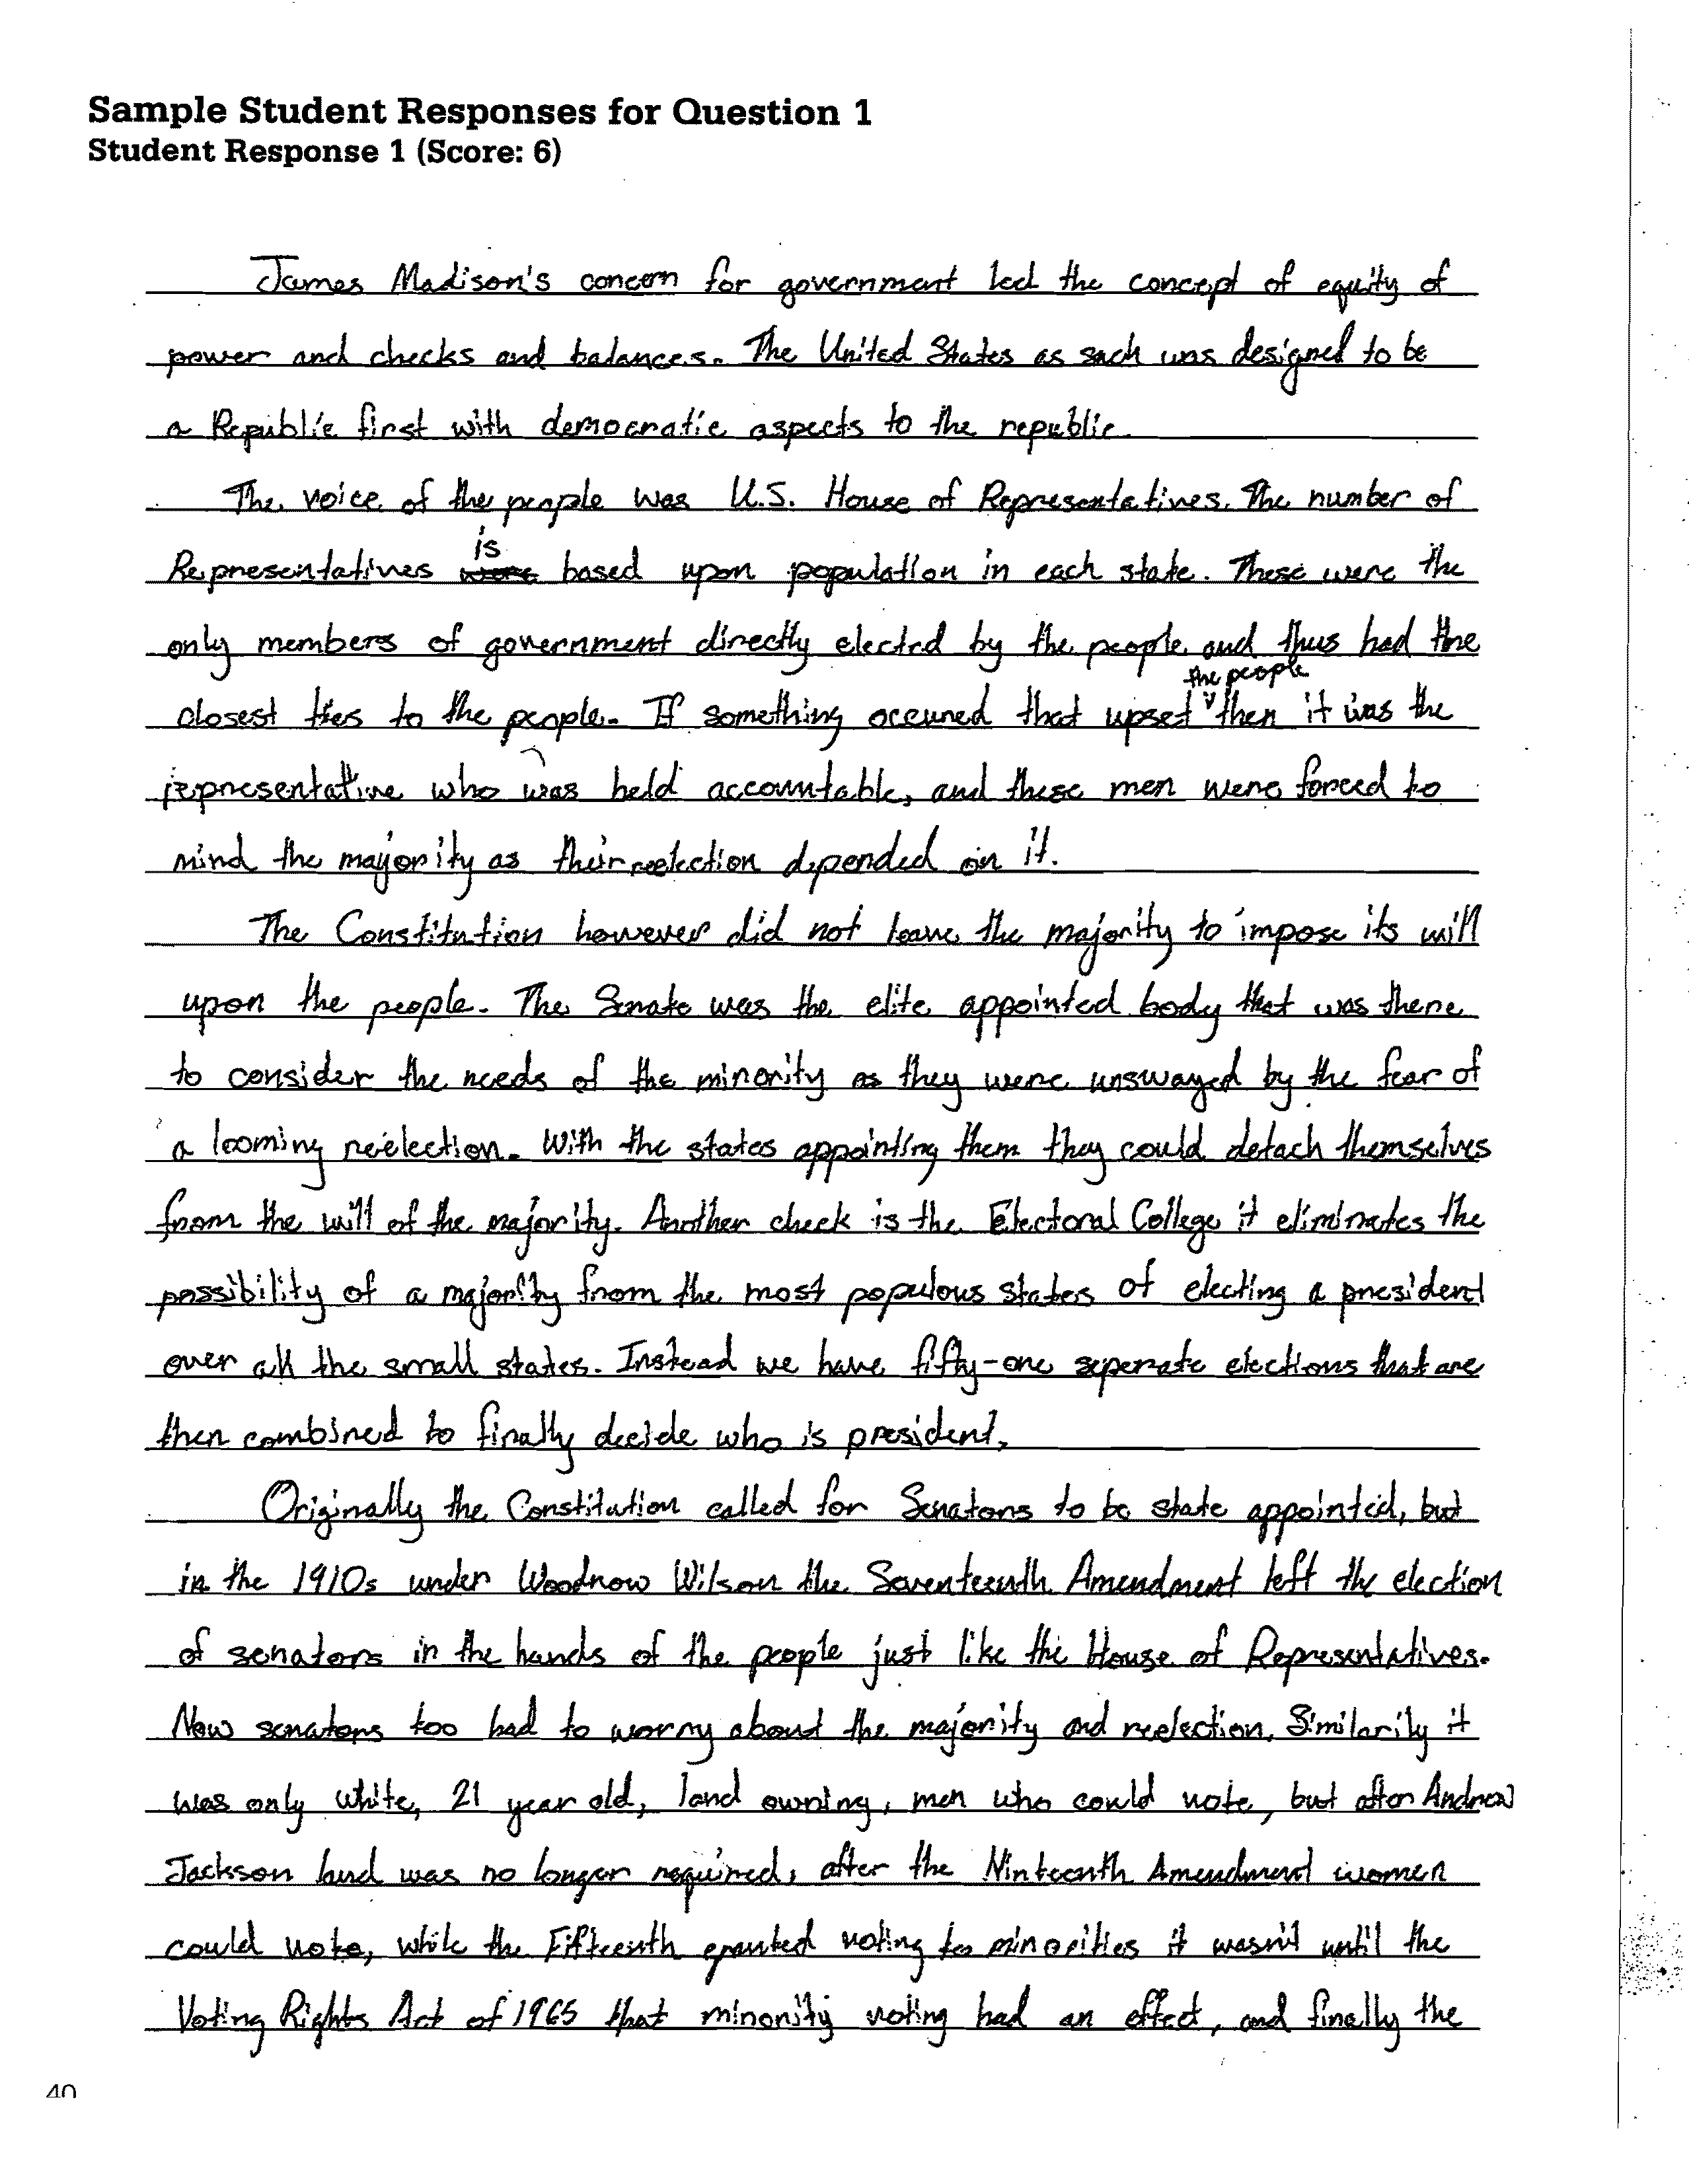 Sample Student Responses for Question 1
Student Response 1 (Score: 6)
James Madison's concern for government led the concept of equity of
power and checks and balances. The United States as such was designed to be
a Republic first with democratic aspects to the republic.
The voice of the people was U.S. House of Representatives. The number of
Representatives were is based upon population in each state. These were the
only members of government directly elected by the people and thus had the
closest ties to the people. If something occured that upset the people then it was the
representative who was held accountable, and these men were forced to
mind the majority as their reelection depended on it.
The Constitution however did not leave the majority to impose its will
upon the people. The Senate was the elite appointed body that was there
to consider the needs of the minority as they were unswayed by the fear of
a looming reelection. With the states appointing them they could detach themselves
from the will of the majority. Another check is the Electoral College it eliminates the
possibility of a majority from the most populous states of electing a president
over all the small states. Instead we have fifty-one seperate elections that are
then combined to finally decide who is president.
Originally the Constitution called for Senators to be state appointed, but
in the 1910s under Woodrow Wilson the Seventeenth Amendment left the election
of senators in the hands of the people just like the House of Representatives.
Now senators too had to worry about the majority and reelection. Similarily it
was only white, 21 year old, land owning, men who could vote, but after Andrew
Jackson land was no longer required, after the Ninteenth Amendment women
could vote, while the Fifteenth granted voting to minorities it wasn't until the
Voting Rights Act of 1965 that minority voting had an effect, and finally the
40